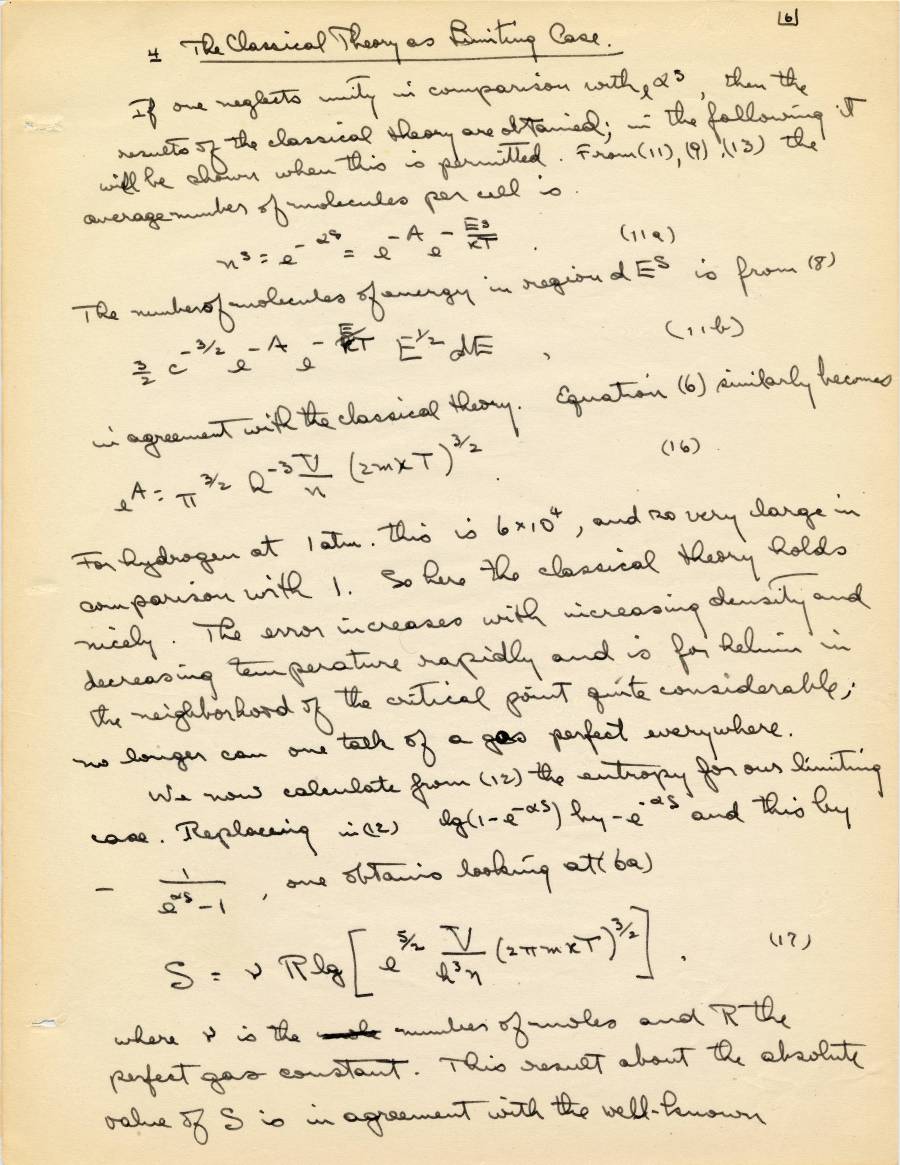 6
4 The Classical Theory as Limiting Case.
If one neglects unity in comparison with e^α^s, then the
results of the classical theory are obtained; in the following it
will be shown when this is permitted. From (11), (9), (13) the
average number of molecules per cell is
n^s = e^-α^s = e^-A e^-E^s/κT . (11a)
The number of molecules of energy in region dE^s is from (8)
3/2 c^-3/2 e^-A e^-E/κT E^1/2 dE , (11b)
in agreement with the classical theory. Equation (6) similarly becomes
e^A = π^3/2 h^-3 V/n (2mκT)^3/2 . (16)
For hydrogen at 1 atm. this is 6×10^4, and so very large in
comparison with 1. So here the classical theory holds
nicely. The error increases with increasing density and
decreasing temperature rapidly and is for helium in
the neighborhood of the critical point quite considerable;
no longer can one talk of a gas perfect everywhere.
We now calculate from (12) the entropy for our limiting
case. Replacing in (12) lg(1-e^-α^s) by -e^-α^s and this by
- 1/(e^α^s -1) , one obtains looking at (6a)
S = ν R lg [ e^5/2 V/h^3n (2πmκT)^3/2 ] . (17)
where ν is the number of moles and R the
perfect gas constant. This result about the absolute
value of S is in agreement with the well-known